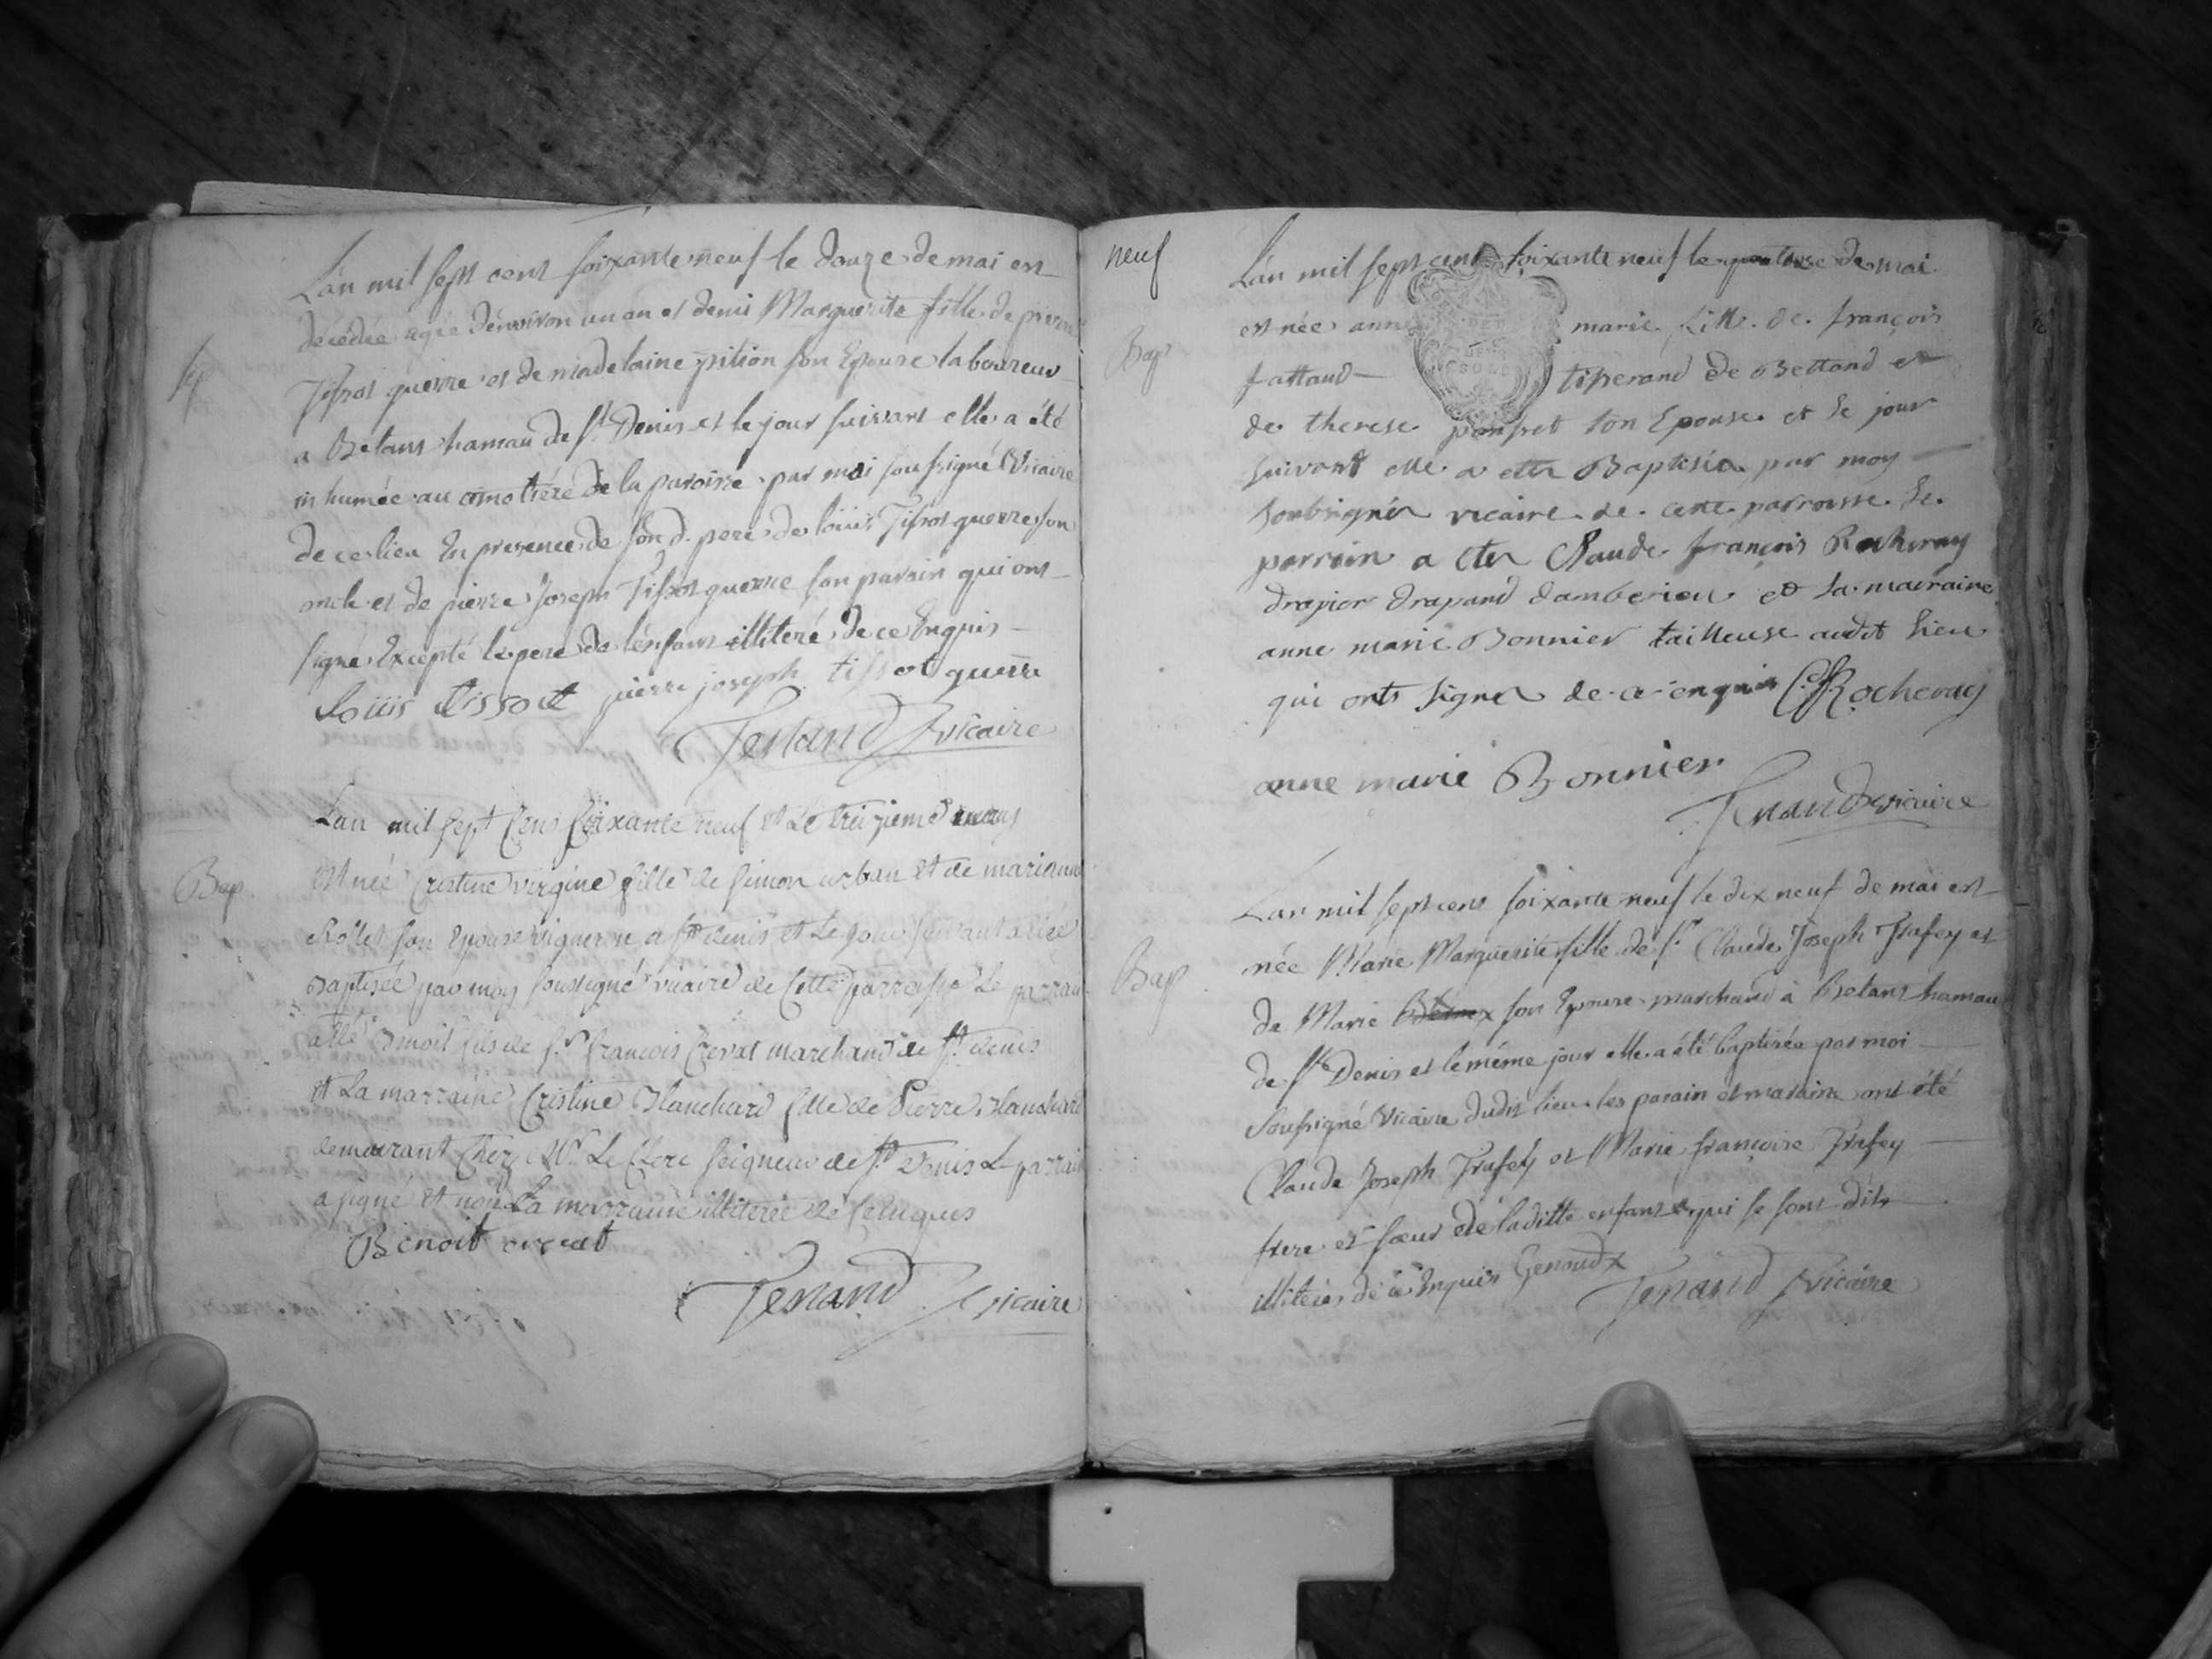 L'an mil sept cent soixante neuf le douze de mai est
décédée agée d'environ un an et demi Marguerite fille de pierre
Sep
Tissot guerre et de madelaine pition son Epouse laboureur
a Betans hameau de St Denis et le jour suivant elle a été
inhumée au cimetieré de la paroisse par moi soussigné Vicaire
de ce lieu En presence de son d. pere de louis Tissot guerre son
oncle et de pierre Joseph Tissot guerre son parain qui ont
signé Excepté le pere de l'enfant illiteré de ce Enquis
Loüis tissot pierre joseph tissot guerre
Tenand Vicaire
L'an mil sept Cens soixante neuf et Le treizieme
Bap
est née Cristine virgine fille de simon urban et de marianne
son Epouse vigneron a St denis et Le jour suivant a été
Baptisée par moy soussigné vicaire de Cette parroisse Le parrain
a été Benoit fils de Sr françois Crevat marchand de St denis
et La marraine Cristine Blanchard fille de Pierre Blanchard
demeurant Chez Mr Le Clerc seigneur de St Denis Le parrain
a signé et non La marraine illiterée de Ce Enquis
Benoit crevat
Tenand Vicaire
neuf
L'an mil sept cent soixante neuf le quatorse de mai
Bap
est née anne marie fille de françois
fattaud tisserand de Bettand et
de therese ponsset son Epouse et le jour
suivant elle a eter Baptisée par moy
soubsigné vicaire de cette parroisse le
parrain a eter Claude françois Rocheray
drapier drapand damberieu et la marraine
anne marie Bonnier tailleuse audit lieu
qui onts signer de ce enquis C f Rocheray
anne marie Bonnier
Tenand vicaire
L'an mil sept cens soixante neuf le dix neuf de mai est
Bap
née Marie Marguerite fille de Sr Claude Joseph Trafey et
de Marie son Epouse marchand à Betans hameau
de St Denis et le même jour elle a été baptisée par moi
soussigné Vicaire dudit lieu les parain et maraine ont été
Claude Joseph Trafey et Marie françoise Trafey
frere et sœur de laditte enfant qui se sont dits
illiterés de ce Enquis Genoudx
Tenand Vicaire